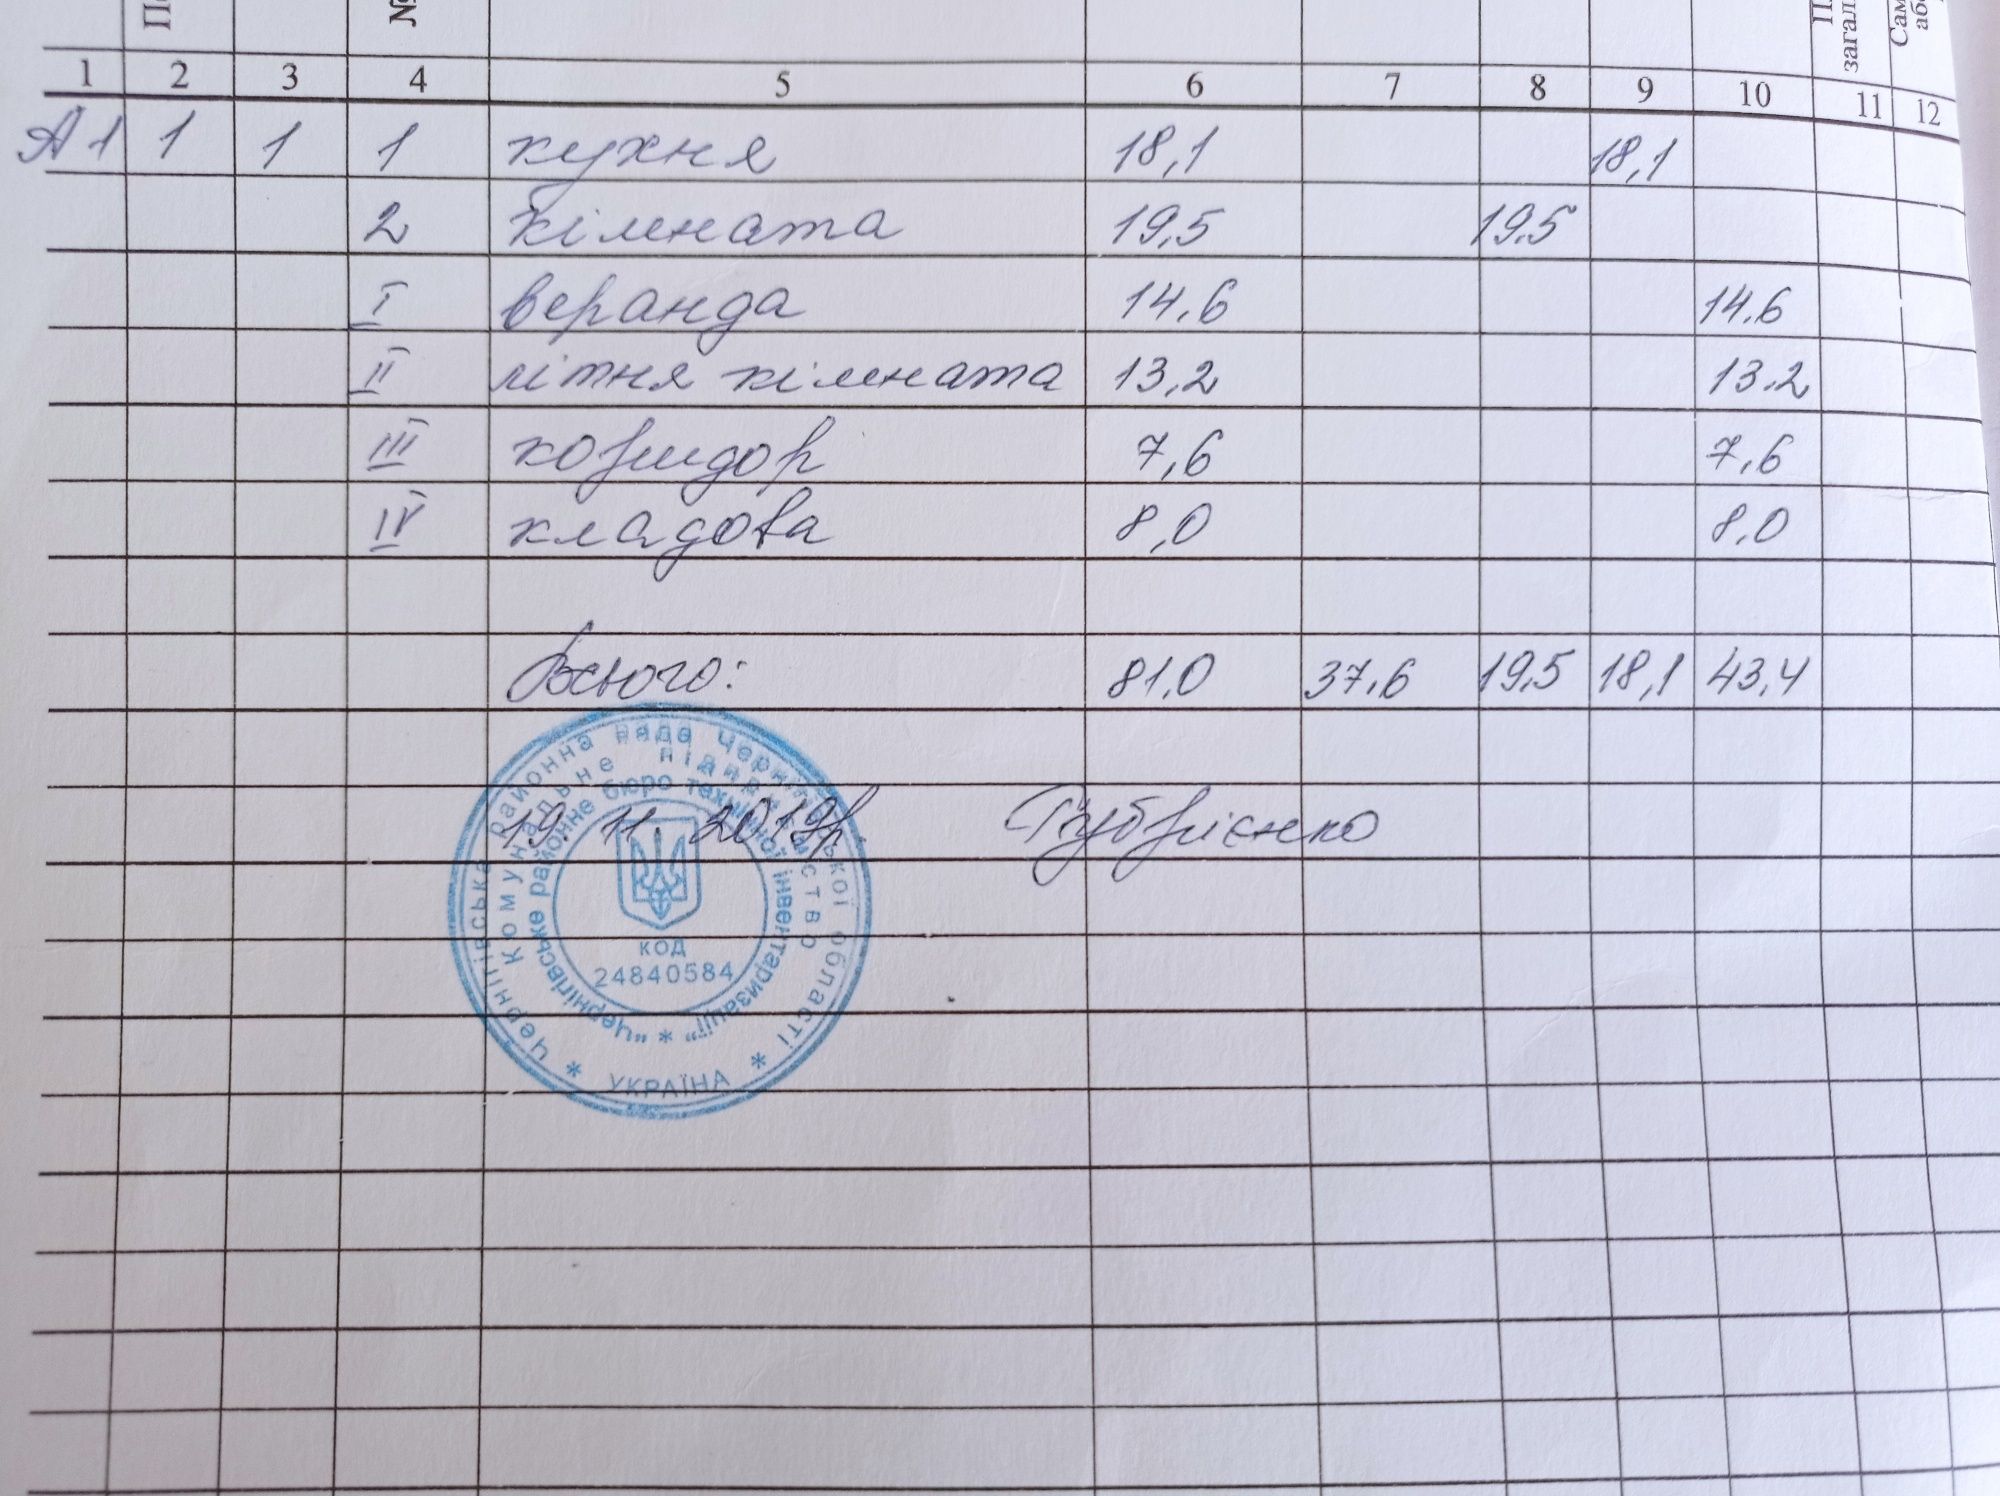 №
1 2 3 4 5 6 7 8 9 10 11 12
А1 1 1 1 кухня 18,1 18,1
2 кімната 19,5 19.5
I веранда 14,6 14.6
II літня кімната 13,2 13.2
III коридор 7,6 7,6
IV кладова 8,0 8,0
Всього: 81,0 37,6 19,5 18,1 43,4
19. 11. 2019р.
Чернігівська районна рада Чернігівської області
Комунальне підприємство
"Чернігівське районне бюро технічної інвентаризації"
КОД
24840584
* УКРАЇНА *